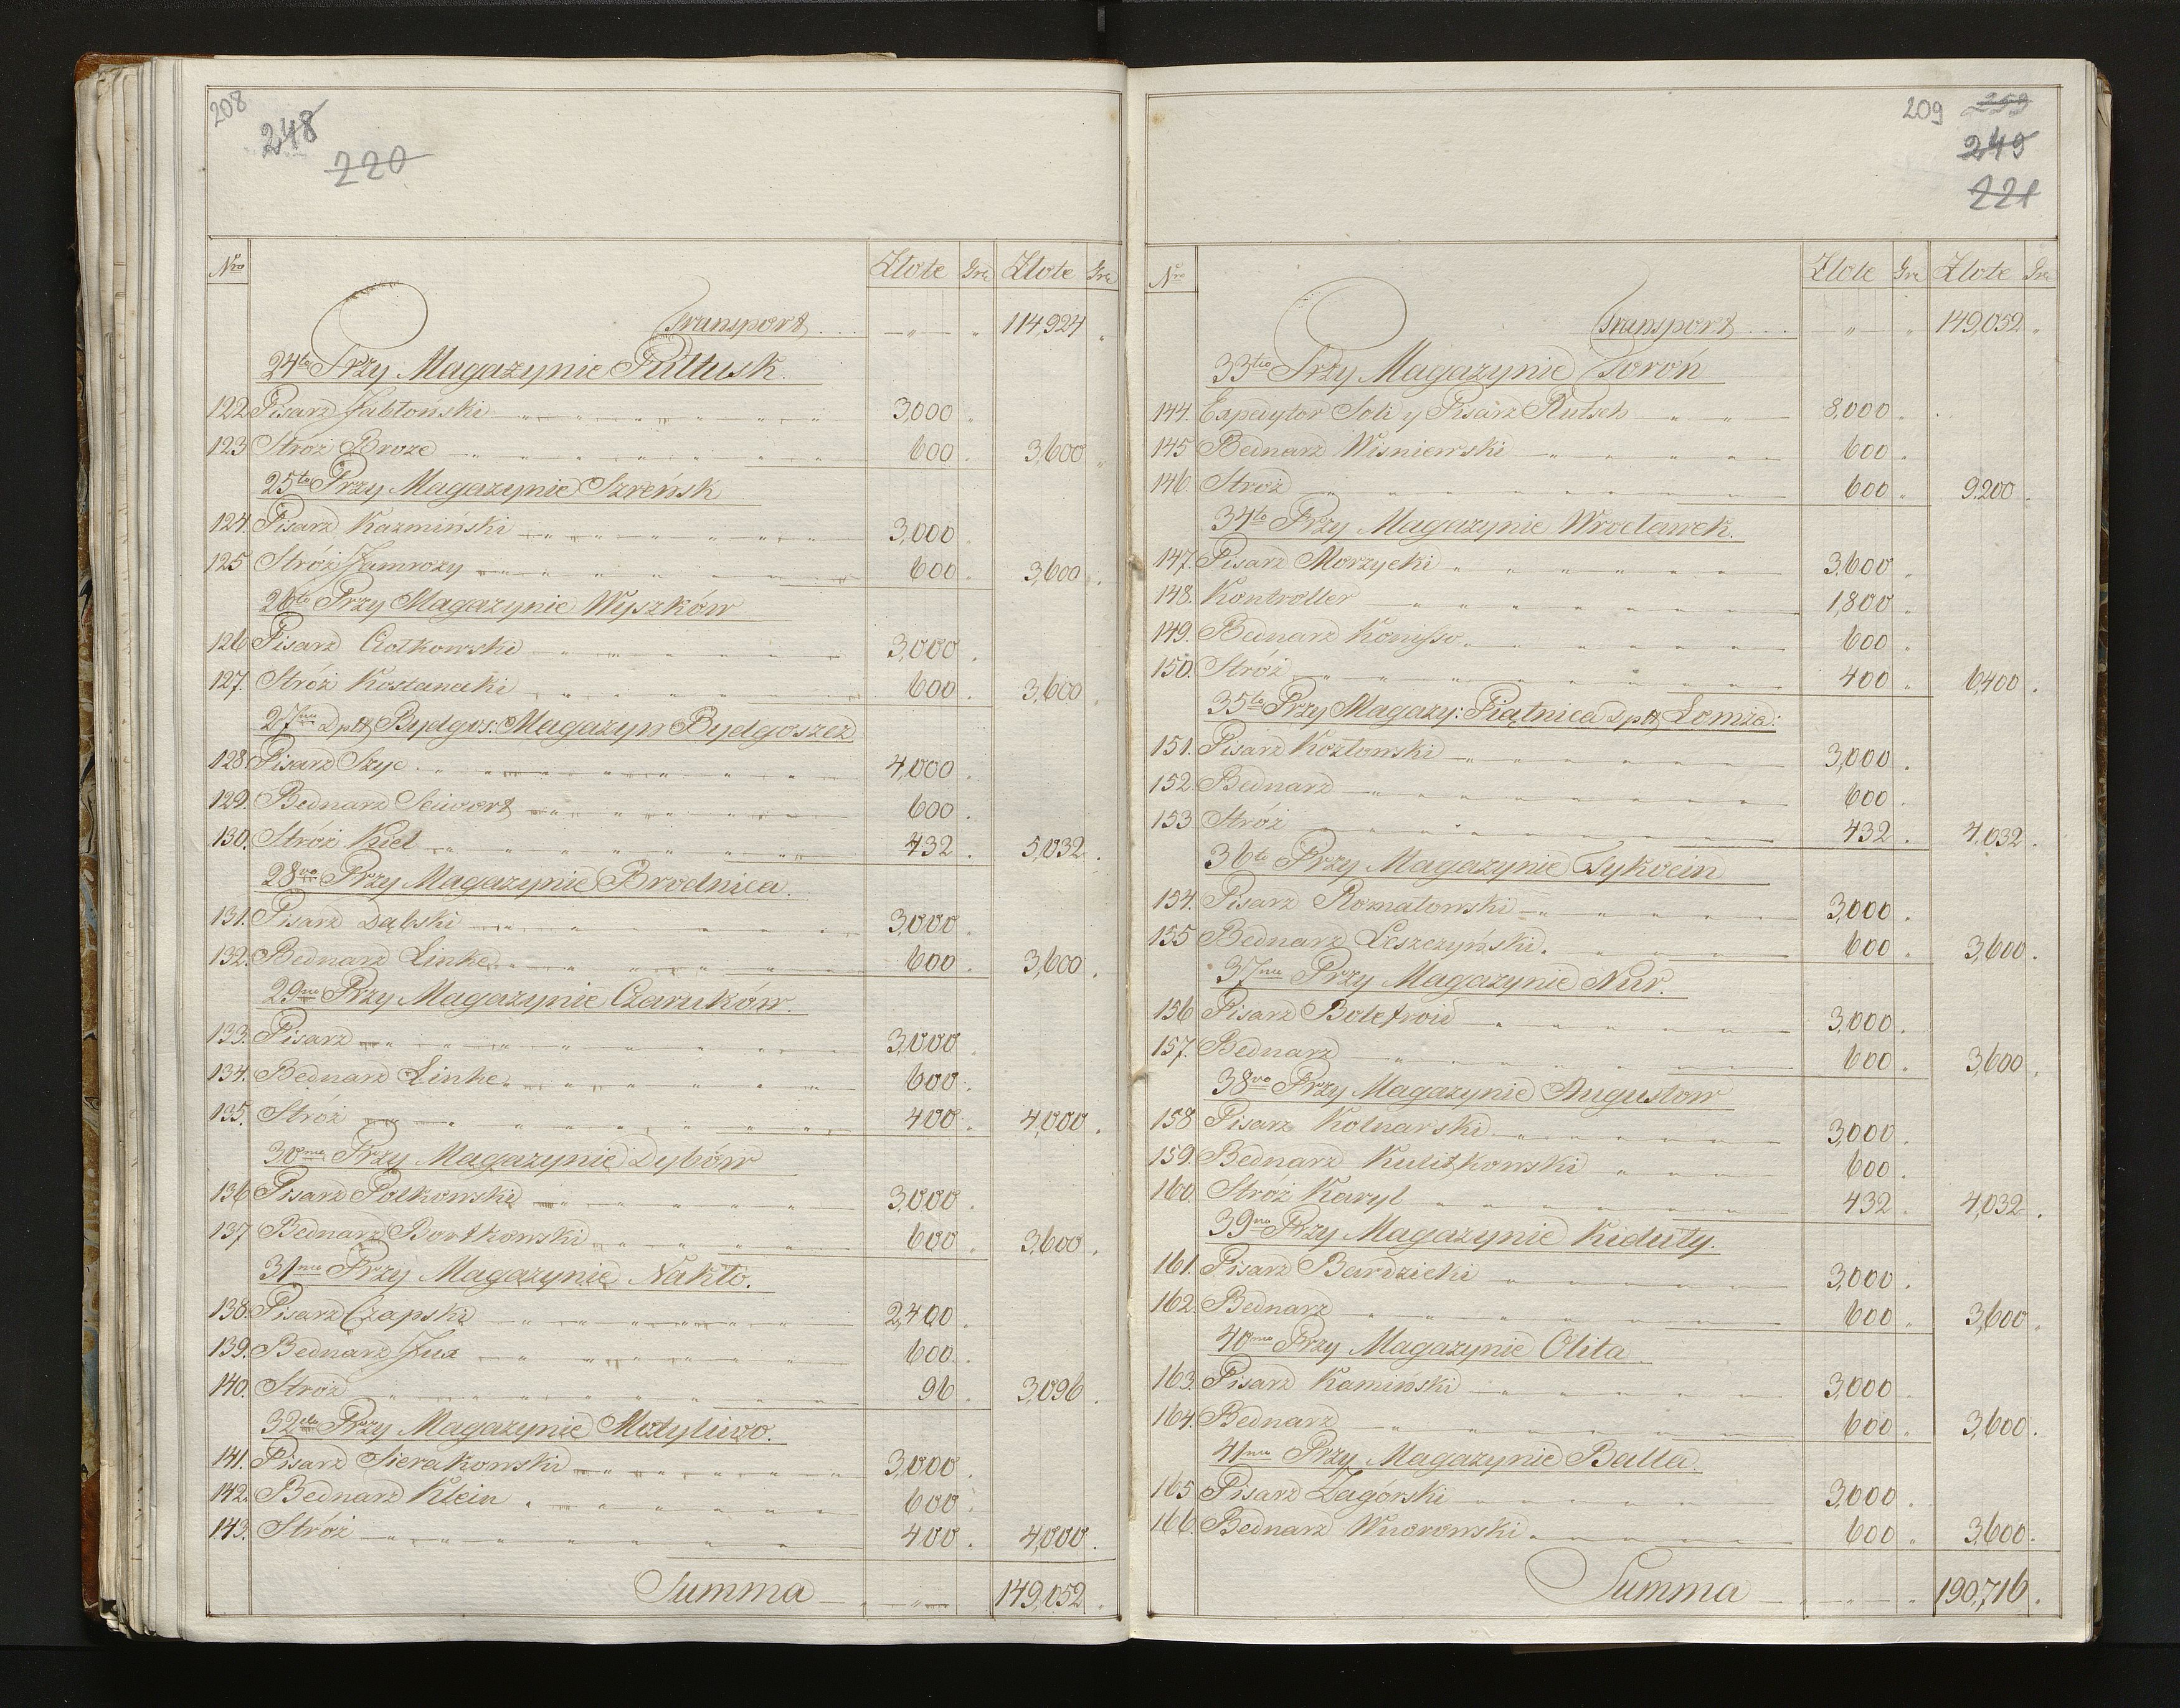 208
248
220
Nro Złote Gr Złote Gr
Transport . . . 114,924
24to Przy Magazynie Pułtusk.
122 Pisarz Jabłoński 3,000
123 Stroż Broze 600 3,600
25to Przy Magazynie Szreńsk
124. Pisarz Kazmiński 3,000
125 Stróż Jamrozy 600 3,600
26to Przy Magazynie Wyszków
126 Pisarz Ciołkowski 3,000
127. Stróż Kostanecki 600 3,600
27mo Dptt Bydgos: Magazyn Bydgoszcz
128. Pisarz Szyc 4,000
129. Bednarz Seiwert 600
130. Stróż Kiel 432 5,032
28vo Przy Magazynie Brodnica.
131. Pisarz Dąbski 3,000
132. Bednarz Linke 600 3,600
29no Przy Magazynie Czarnków.
133. Pisarz 3,000
134. Bednarz Linke 600
135. Stróż 400 4,000
30mo Przy Magazynie Dybów
136 Pisarz Polkowski 3,000
137 Bednarz Bortkowski 600 3,600
31mo Przy Magazynie Nakło.
138. Pisarz Czapski 2,400
139. Bednarz Jux 600
140. Stroż 96 3,096
32do Przy Magazynie Motylewo.
141. Pisarz Sierakowski 3,000
142. Bednarz Klein 600
143. Stróż 400 4,000
Summa 149,052
209 259
249
221
Nro Złote Gr Złote Gr
Transport . . . 149,052
33tio Przy Magazynie Toroń
144. Expedytor Soli y Pisarz Rutsch 8,000
145 Bednarz Wisniewski 600
146. Stroż 600 9,200
34to Przy Magazynie Wrocławek.
147. Pisarz Morzycki 3,600
148. Kontroller 1,800
149. Bednarz Konisso 600
150. Stróż 400 6,400
35to Przy Magazy: Piątnica Dptt Łomża:
151. Pisarz Kozłowski 3,000
152. Bednarz 600
153 Stróż 432 4,032
36to Przy Magazynie Tykocin
154. Pisarz Romatowski 3,000
155 Bednarz Leszczyński 600 3,600
37mo Przy Magazynie Nur.
156 Pisarz Bolefroid 3,000
157. Bednarz 600 3,600
38vo Przy Magazynie Augustow
158 Pisarz Kolnarski 3,000
159. Bednarz Kulitkowski 600
160 Stróż Karyl 432 4,032
39no Przy Magazynie Kiduty.
161. Pisarz Bardzicki 3,000
162. Bednarz 600 3,600
40mo Przy Magazynie Olita
163. Pisarz Kamiński 3,000
164. Bednarz 600 3,600
41mo Przy Magazynie Balla.
165 Pisarz Zagórski 3,000
166. Bednarz Wnorowski 600 3,600
Summa 190,716